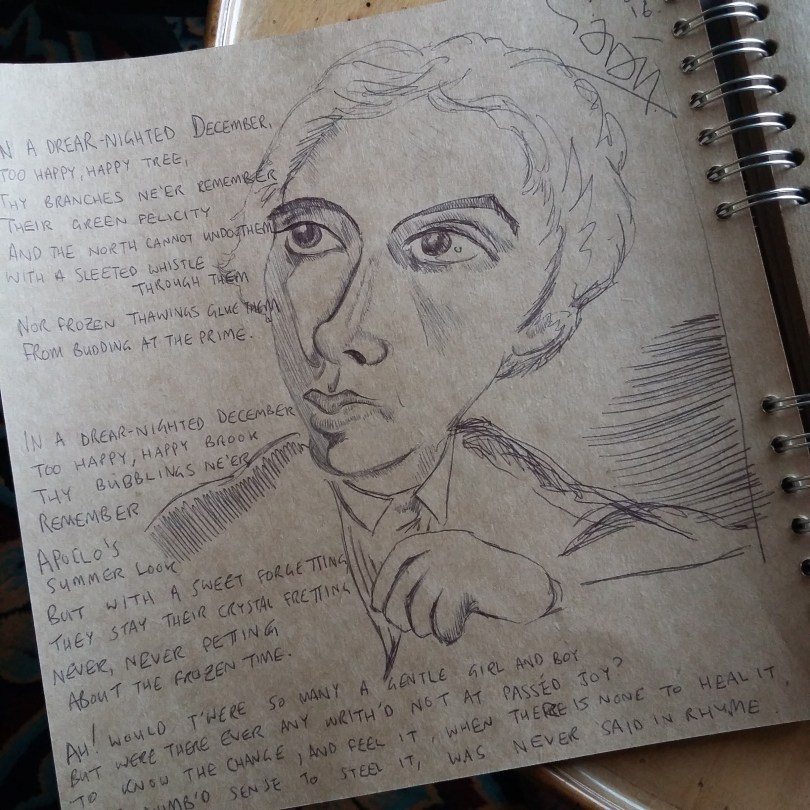 N A DREAR-NIGHTED DECEMBER,
TOO HAPPY, HAPPY TREE,
THY BRANCHES NE'ER REMEMBER
THEIR GREEN FELICITY
AND THE NORTH CANNOT UNDO THEM
WITH A SLEETED WHISTLE
THROUGH THEM
NOR FROZEN THAWINGS GLUE THEM
FROM BUDDING AT THE PRIME.
IN A DREAR-NIGHTED DECEMBER
TOO HAPPY, HAPPY BROOK
THY BUBBLINGS NE'ER
REMEMBER
APOLLO'S
SUMMER LOOK
BUT WITH A SWEET FORGETTING
THEY STAY THEIR CRYSTAL FRETTING
NEVER, NEVER PETTING
ABOUT THE FROZEN TIME.
AH! WOULD T'WERE SO MANY A GENTLE GIRL AND BOY
BUT WERE THERE EVER ANY WRITH'D NOT AT PASSÉD JOY?
TO KNOW THE CHANGE, AND FEEL IT, WHEN THERE IS NONE TO HEAL IT,
NUMB'D SENSE TO STEEL IT, WAS NEVER SAID IN RHYME.
16